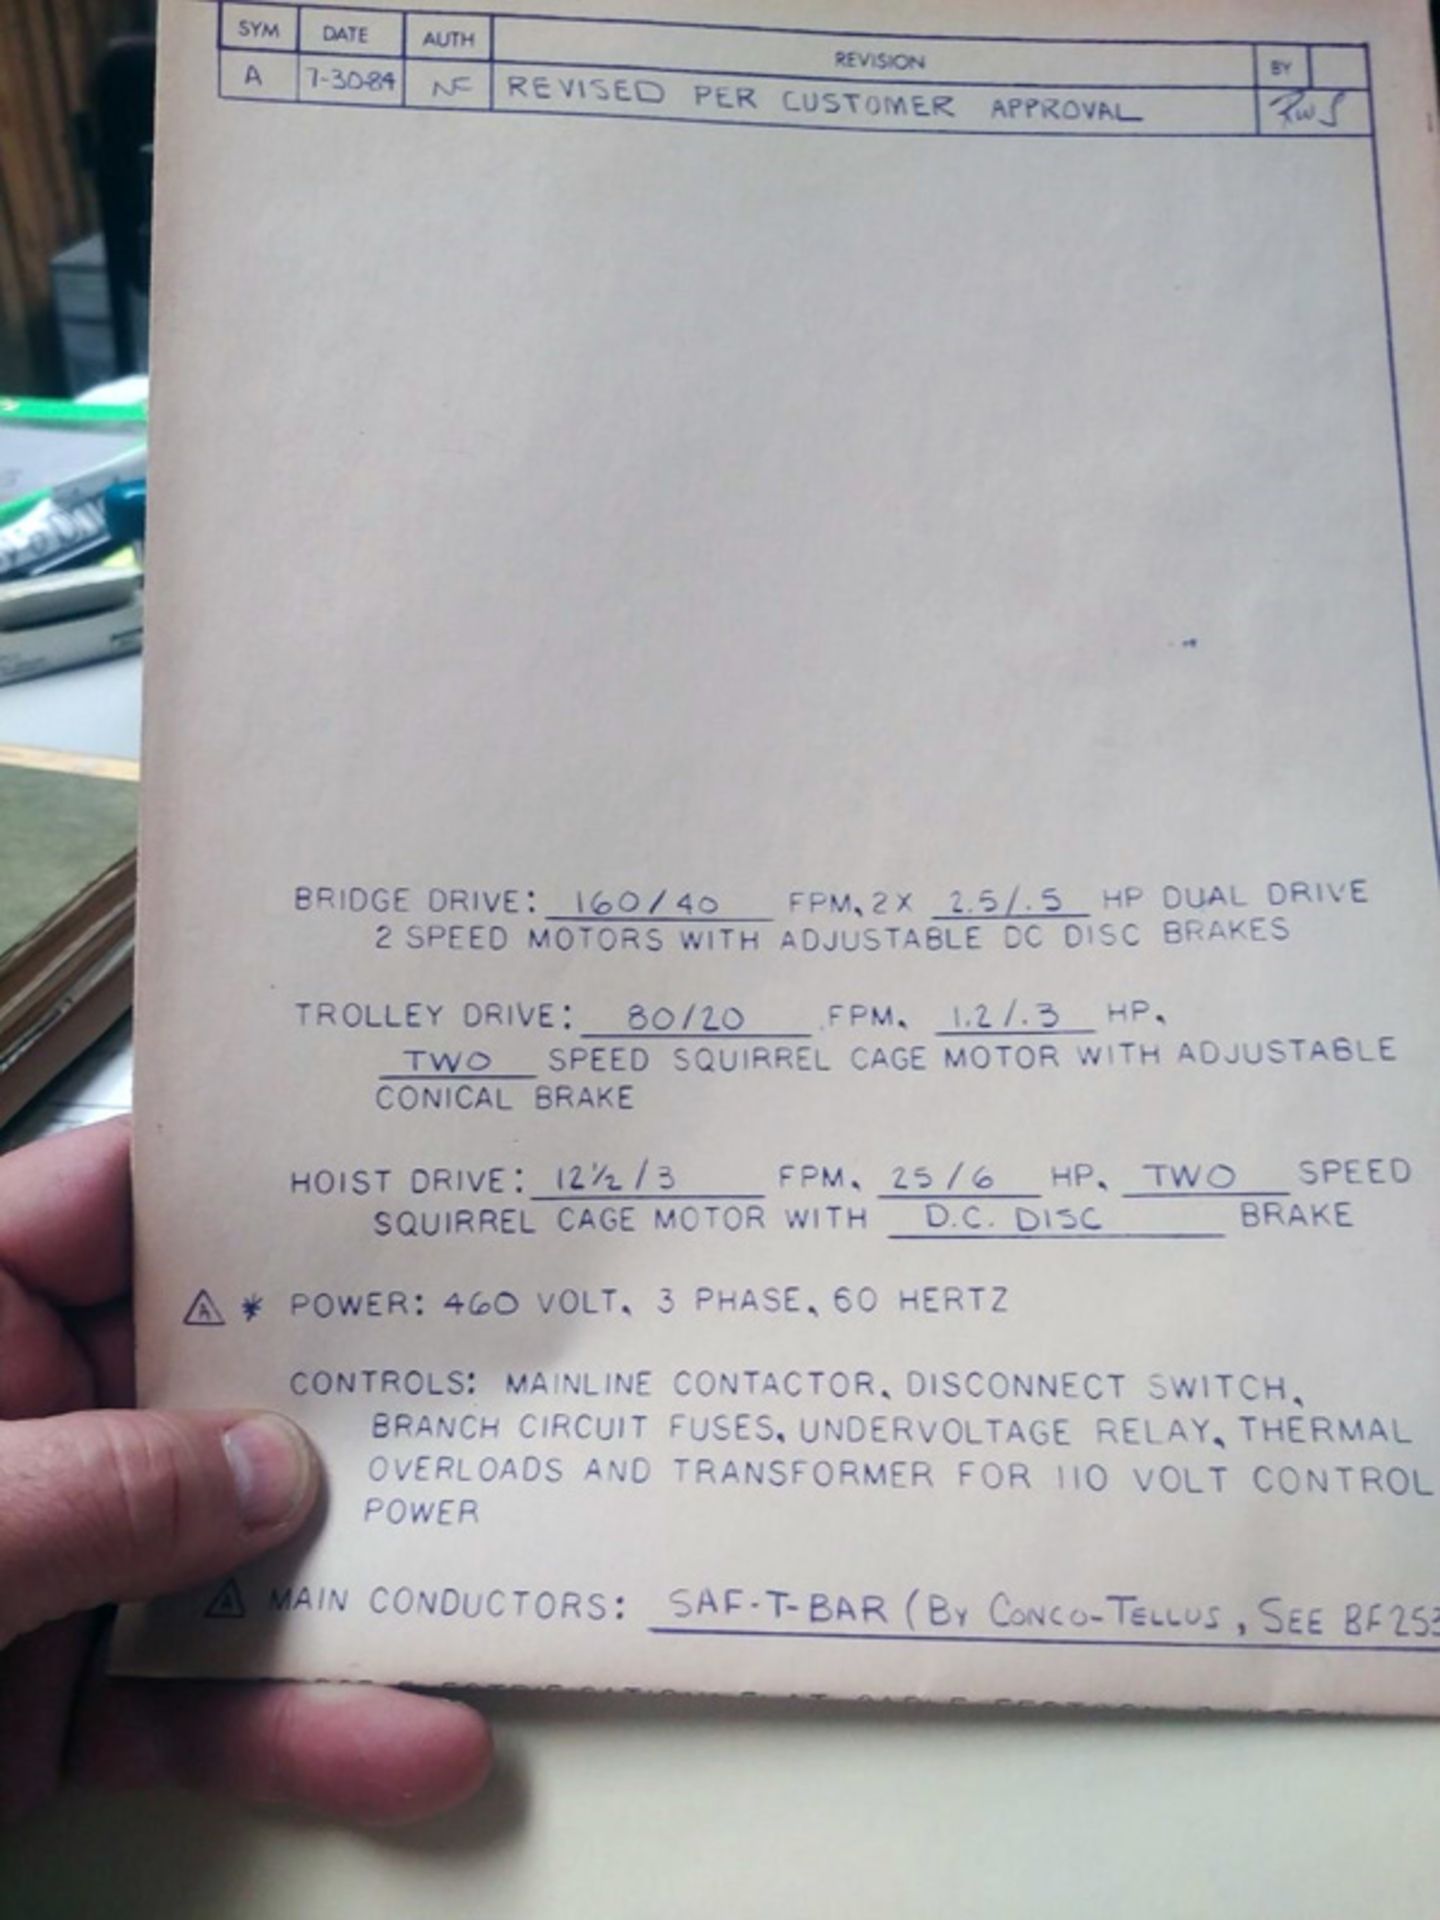 SYM DATE AUTH REVISION BY
A 7-30-84 NF REVISED PER CUSTOMER APPROVAL RWS
BRIDGE DRIVE: 160/40 FPM, 2X 2.5/.5 HP DUAL DRIVE
2 SPEED MOTORS WITH ADJUSTABLE DC DISC BRAKES
TROLLEY DRIVE: 80/20 FPM, 1.2/.3 HP,
TWO SPEED SQUIRREL CAGE MOTOR WITH ADJUSTABLE
CONICAL BRAKE
HOIST DRIVE: 12½/3 FPM, 25/6 HP, TWO SPEED
SQUIRREL CAGE MOTOR WITH D.C. DISC BRAKE
A * POWER: 460 VOLT, 3 PHASE, 60 HERTZ
CONTROLS: MAINLINE CONTACTOR, DISCONNECT SWITCH,
BRANCH CIRCUIT FUSES, UNDERVOLTAGE RELAY, THERMAL
OVERLOADS AND TRANSFORMER FOR 110 VOLT CONTROL
POWER
A MAIN CONDUCTORS: SAF-T-BAR (BY CONCO-TELLUS, SEE BF253